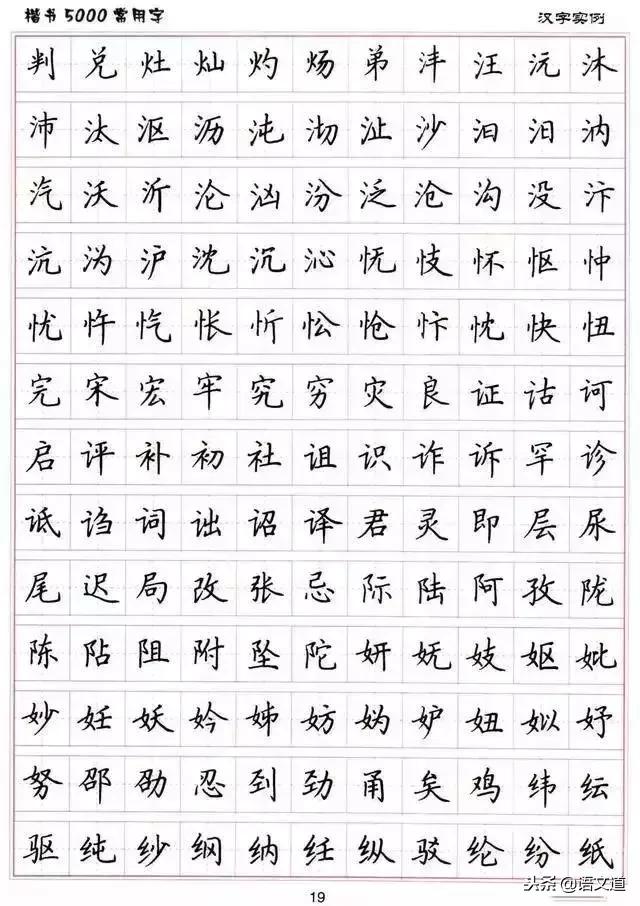 楷书5000常用字 汉字实例
判兑灶灿灼炀弟沣汪沅沐
沛汰沤沥沌沏沚沙汩汨汭
汽沃沂沦汹汾泛沧沟没汴
沆沩沪沈沉沁怃忮怀怄忡
忧忤忾怅忻忪怆忭忱快忸
完宋宏牢究穷灾良证诂诃
启评补初社诅识诈诉罕诊
诋诌词诎诏译君灵即层尿
尾迟局改张忌际陆阿孜陇
陈阽阻附坠陀妍妩妓妪妣
妙妊妖妗姊妨妫妒妞姒妤
努邵劭忍到劲甬矣鸡纬纭
驱纯纱纲纳纴纵驳纶纷纸
19
头条@语文道